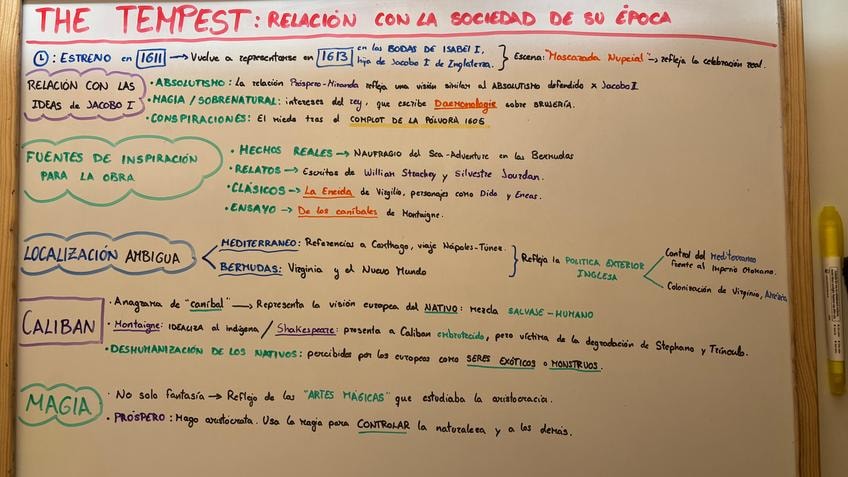 THE TEMPEST: RELACIÓN CON LA SOCIEDAD DE SU ÉPOCA
ESTRENO en 1611 → Vuelve a representarse en 1613 en las BODAS DE ISABEL I, hija de Jacobo I de Inglaterra. } Escena: "Mascarada Nupcial" → refleja la celebración real.
RELACIÓN CON LAS IDEAS de JACOBO I
· ABSOLUTISMO: La relación Próspero-Miranda refleja una visión similar al ABSOLUTISMO defendido x Jacobo I.
· MAGIA / SOBRENATURAL: intereses del rey, que escribe Daemonologie sobre BRUJERÍA.
· CONSPIRACIONES: El miedo tras el COMPLOT DE LA PÓLVORA 1605
FUENTES DE INSPIRACIÓN PARA LA OBRA
· HECHOS REALES → NAUFRAGIO del Sea-Adventure en las Bermudas
· RELATOS → Escritos de William Strachey y Silvestre Jourdan.
· CLÁSICOS → La Eneida de Virgilio, personajes como Dido y Eneas.
· ENSAYO → De los caníbales de Montaigne.
LOCALIZACIÓN AMBIGUA
MEDITERRANEO: Referencias a Carthago, viaje Nápoles-Túnez.
BERMUDAS: Virginia y el Nuevo Mundo
} Refleja la POLITICA EXTERIOR INGLESA
Control del Mediterraneo frente al Imperio Otomano.
Colonización de Virginia, América
CALIBAN
· Anagrama de "caníbal" → Representa la visión europea del NATIVO: mezcla SALVAJE-HUMANO
· Montaigne: IDEALIZA al indígena / Shakespeare: presenta a Caliban embrutecido, pero víctima de la degradación de Stephano y Trínculo.
· DESHUMANIZACIÓN DE LOS NATIVOS: percibidos por los europeos como SERES EXÓTICOS o MONSTRUOS.
MAGIA
· No solo fantasía → Reflejo de las "ARTES MÁGICAS" que estudiaba la aristocracia.
· PRÓSPERO: Mago aristócrata. Usa la magia para CONTROLAR la naturaleza y a los demás.